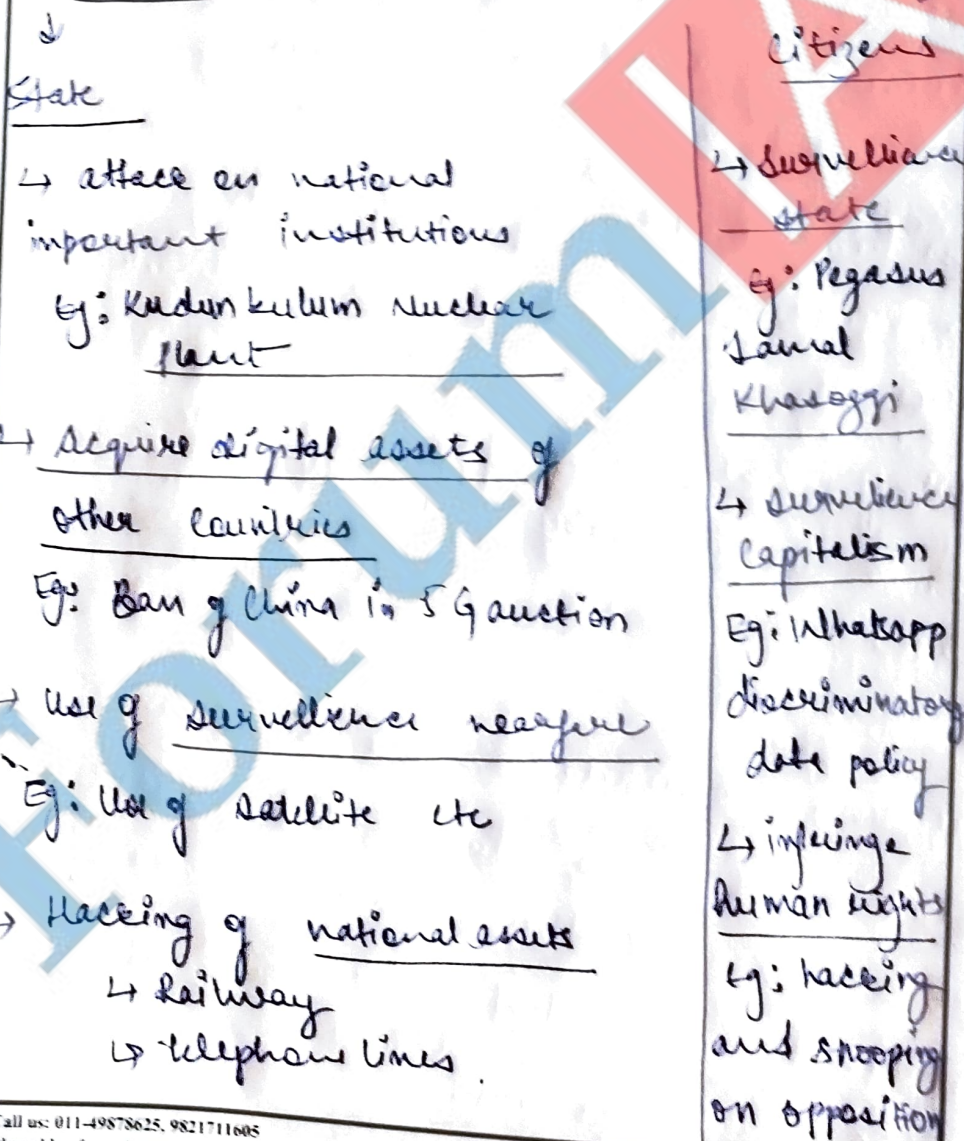 State
↳ attack on national
important institutions
Eg: Kudun kulum Nuclear
Plant
↳ Acquire digital assets of
other Countries
Eg: Ban of China in 5G auction
→ Use of surveillence measure
Eg: Use of satellite etc
→ Hacking of national assets
↳ Railway
↳ telephone lines.
Citizens
↳ Survelliance
state
Eg: Pegasus
Jamal
Khasoggi
↳ survelience
Capitalism
Eg: Whatsapp
discriminatory
data policy
↳ infringe
Human rights
Eg: hacking
and snooping
on opposition
Forum IA
Call us: 011-49878625, 9821711605